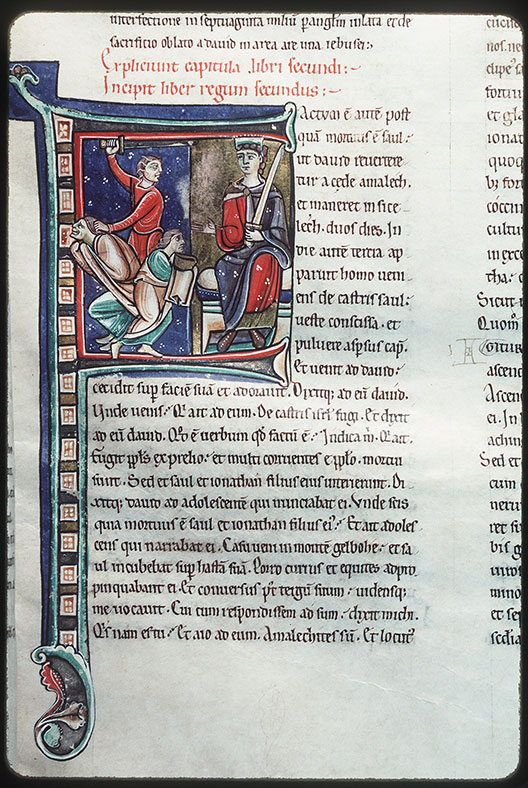 interfectione in septuaginta miliũ p̃ anglm̃ illata et de
sacrificio oblato a dauid in area areuna iebusei:
Expliciunt capitula libri secundi:
Incipit liber regum secundus:
Factvm ẽ autẽ post
quã mortuus ẽ saul:
ut dauid reuertere
tur a cęde amalech.
et maneret in sice
lech. duos dies. In
die autẽ tercia ap
paruit homo ueni
ens de castris saul:
ueste conscissa. et
puluere asp̃sus cap̃.
Et ut uenit ad dauid:
cecidit sup̃ faciẽ suã et adorauit. Dixitq; ad eũ dauid.
Unde uenis? Qi ait ad eum. De castris isrł fugi. Et dixit
ad eũ dauid. Qd ẽ uerbum qd factũ ẽ? Indica m̃. Q ait.
Fugit ppłs ex prelio: et multi corruentes e ppło. mortui
sunt. Sed et saul et ionathan filius eius interierunt. Di
xitq; dauid ad adolescentẽ qui nunciabat ei. Unde scis
quia mortuus ẽ saul et ionathan filius ei? Et ait adoles
cens qui narrabat ei. Casu ueni in montẽ gelboe: et sa
ul incubebat sup̃ hastã suã. Porro currus et equites adpro
pinquabant ei. et conuersus p̃t tergũ suum: uidensq;
me uocauit. Cui cum respondissem ad sum: dixit michi.
Qs nam es tu? Et aio ad eum. Amalechites sũ. Et locut
et
quoq
in exce
tha:
Sicut
gitur
ascen
Ascen
ei. In
achi
Sed et
cum
neru
ret
bis
uiros
mino
et se
sedia